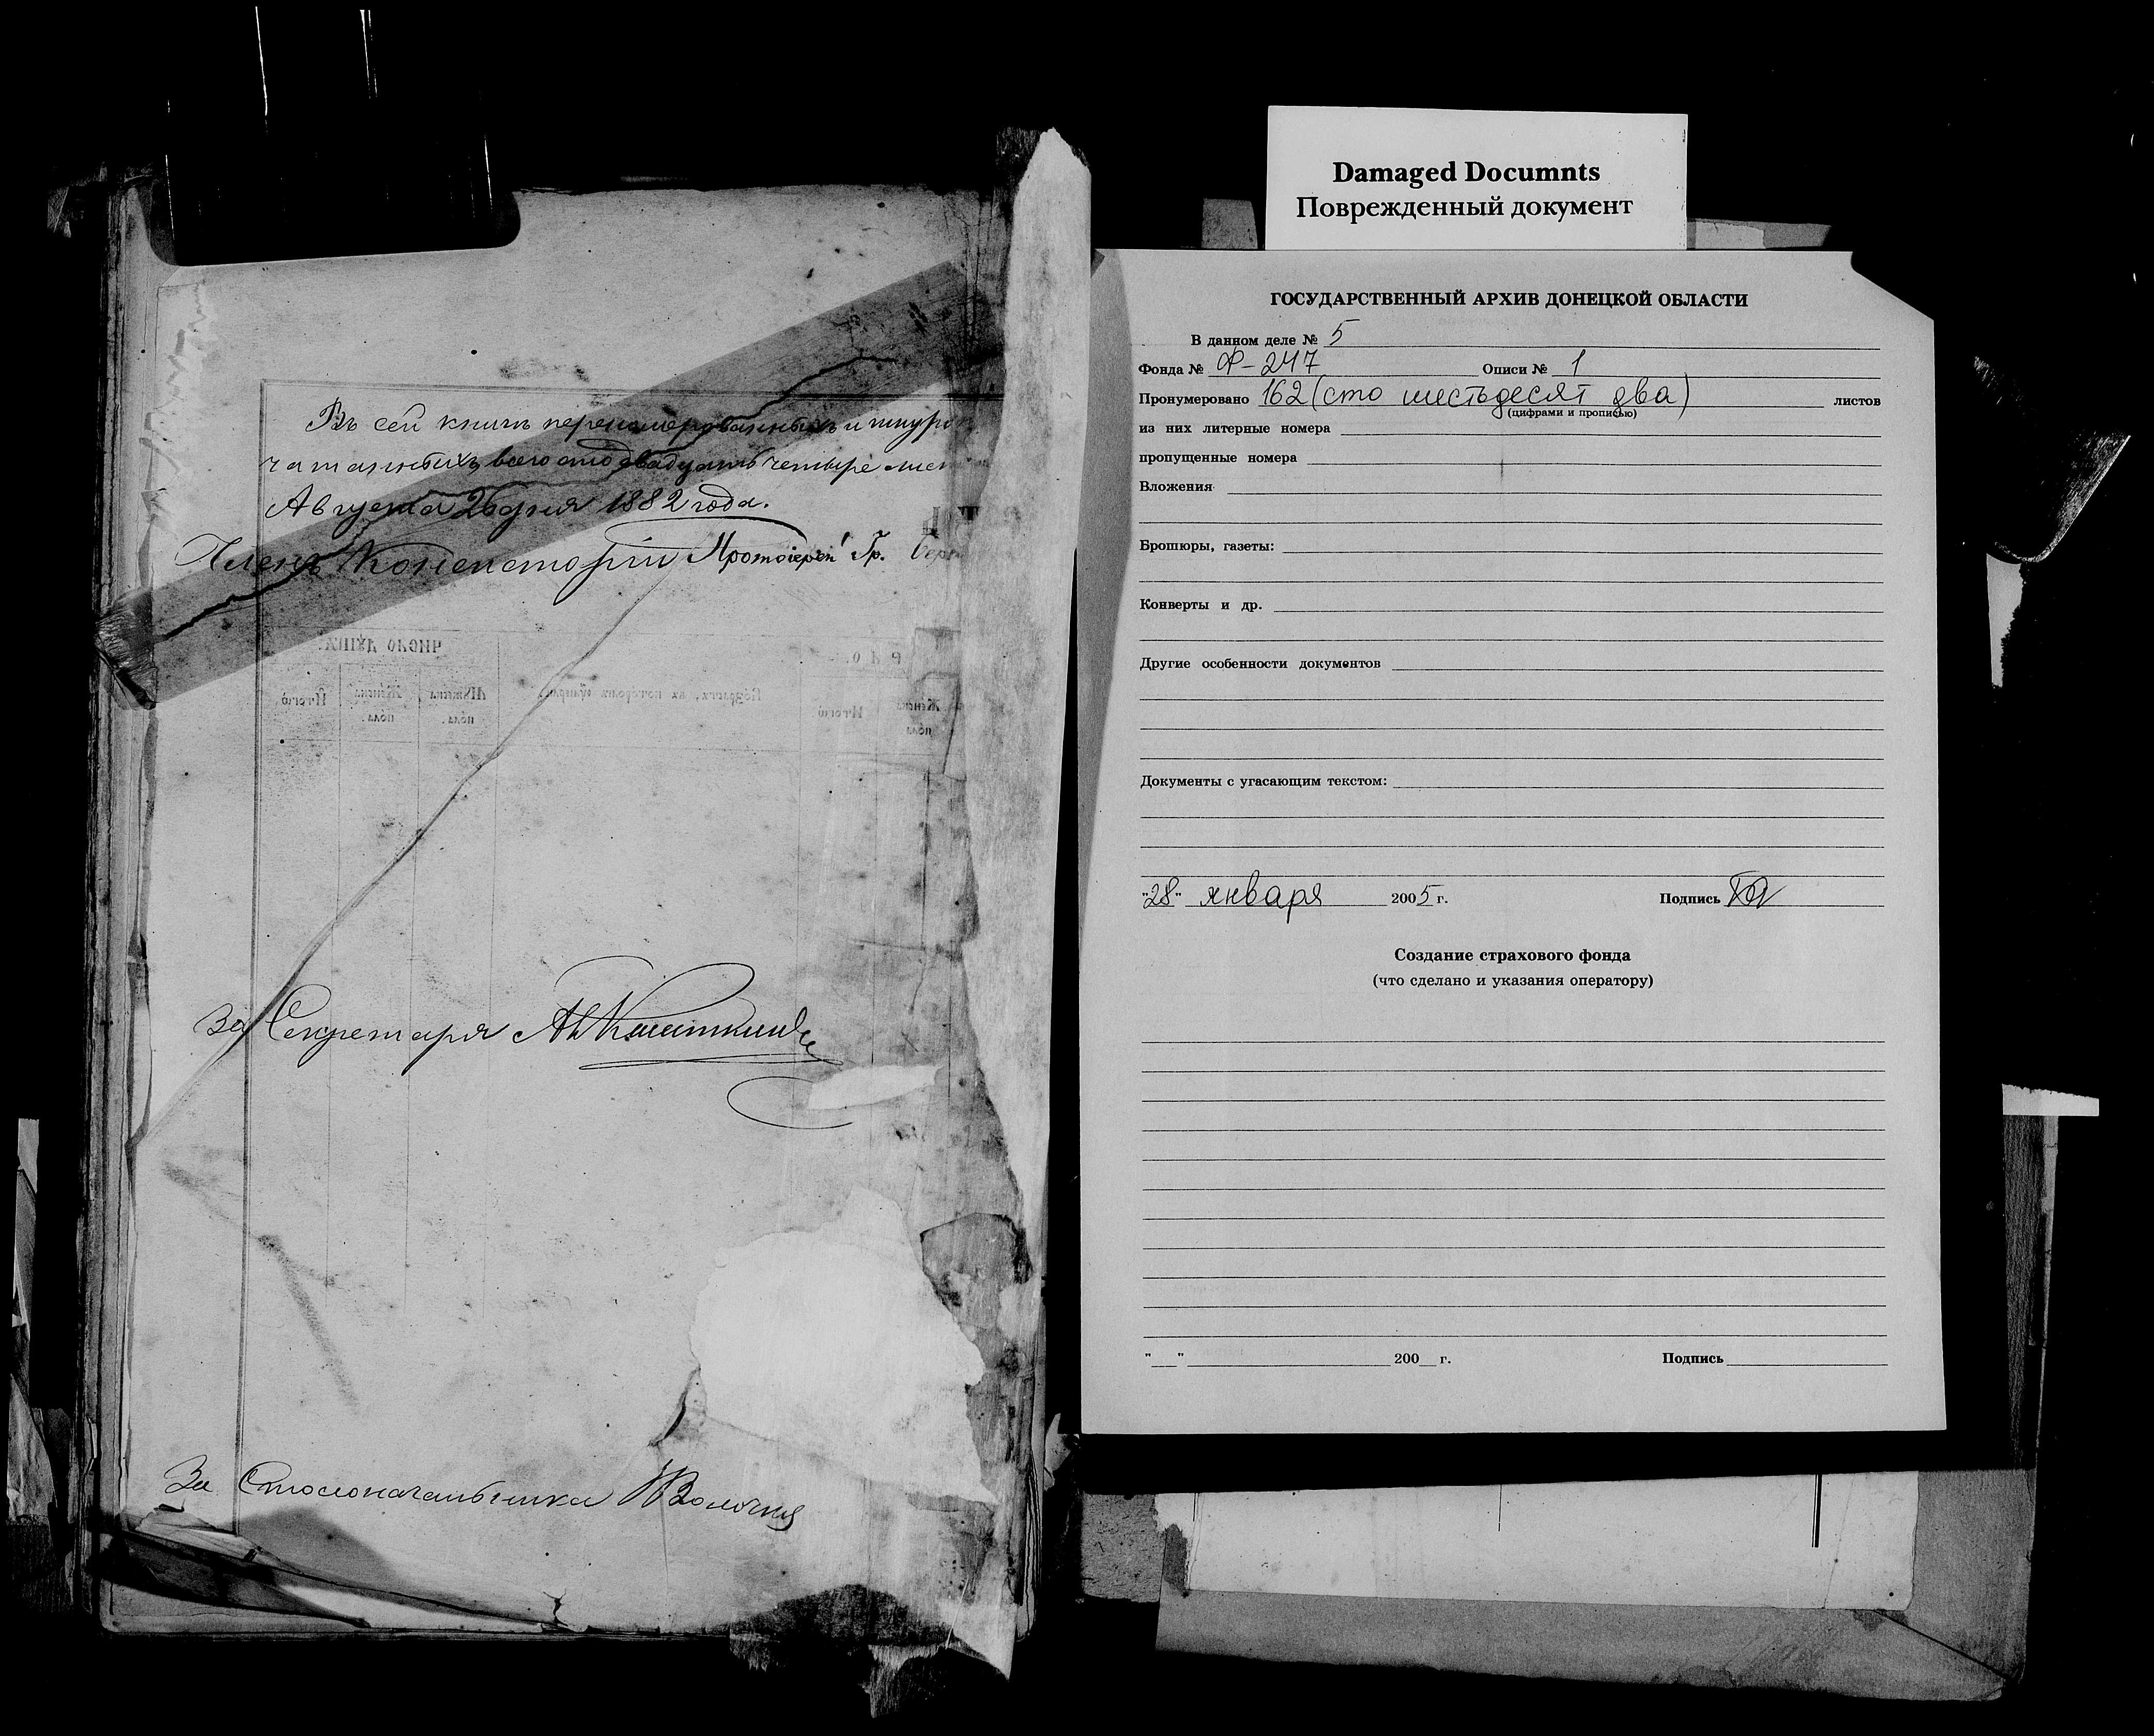 Въ сей книгѣ перенумерованныхъ и шнуро
чатанныхъ всего сто двадцать четыре лист
Августа 26 дня 1882 года.
Членъ Консисторіи Протоіерей Гр.
ЧИСЛО ДѢШХ.
Мꙋжеска пола.
Женска пола.
Итогѡ.
Возрастъ, въ которомъ ꙋмерли.
Женска пола.
Итогѡ
За Секретаря
За Столоначальника
Damaged Documnts
Поврежденный документ
ГОСУДАРСТВЕННЫЙ АРХИВ ДОНЕЦКОЙ ОБЛАСТИ
В данном деле № 5
Фонда № Ф-247 Описи № 1
Пронумеровано 162 (сто шестьдесят два) листов
(цифрами и прописью)
из них литерные номера
пропущенные номера
Вложения
Брошюры, газеты:
Конверты и др.
Другие особенности документов
Документы с угасающим текстом:
"28" января 2005 г. Подпись
Создание страхового фонда
(что сделано и указания оператору)
"__" 200__ г. Подпись